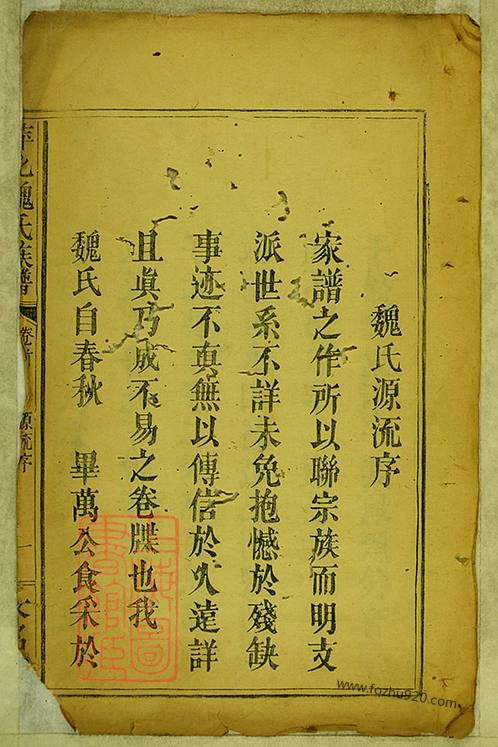 魏氏源流序
家譜之作所以聯宗族而明支
派世系不詳未免抱憾於殘缺
事迹不真無以傳信於久遠詳
且眞乃成不易之卷牒也我
魏氏自春秋　畢萬公食采於
魏氏族譜
卷首
源流序
一
www.fozhu920.com